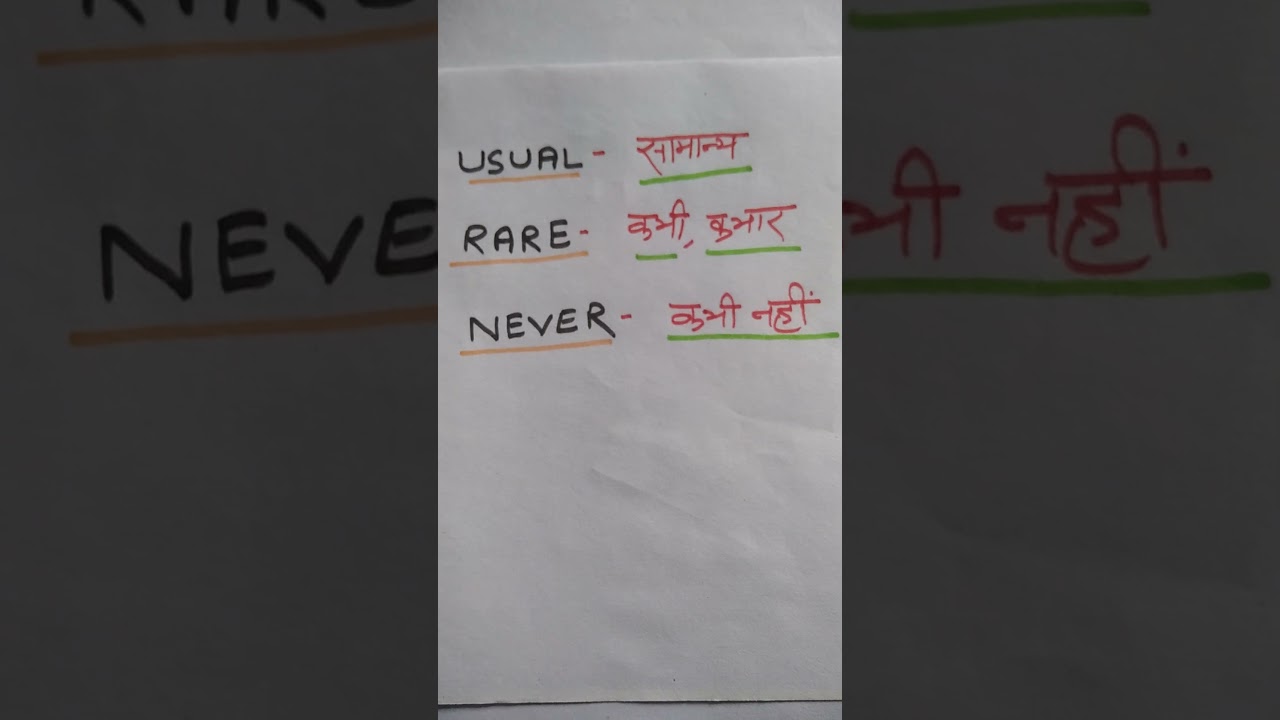 USUAL - सामान्य
RARE - कभी, कुभार
NEVER - कभी नहीं